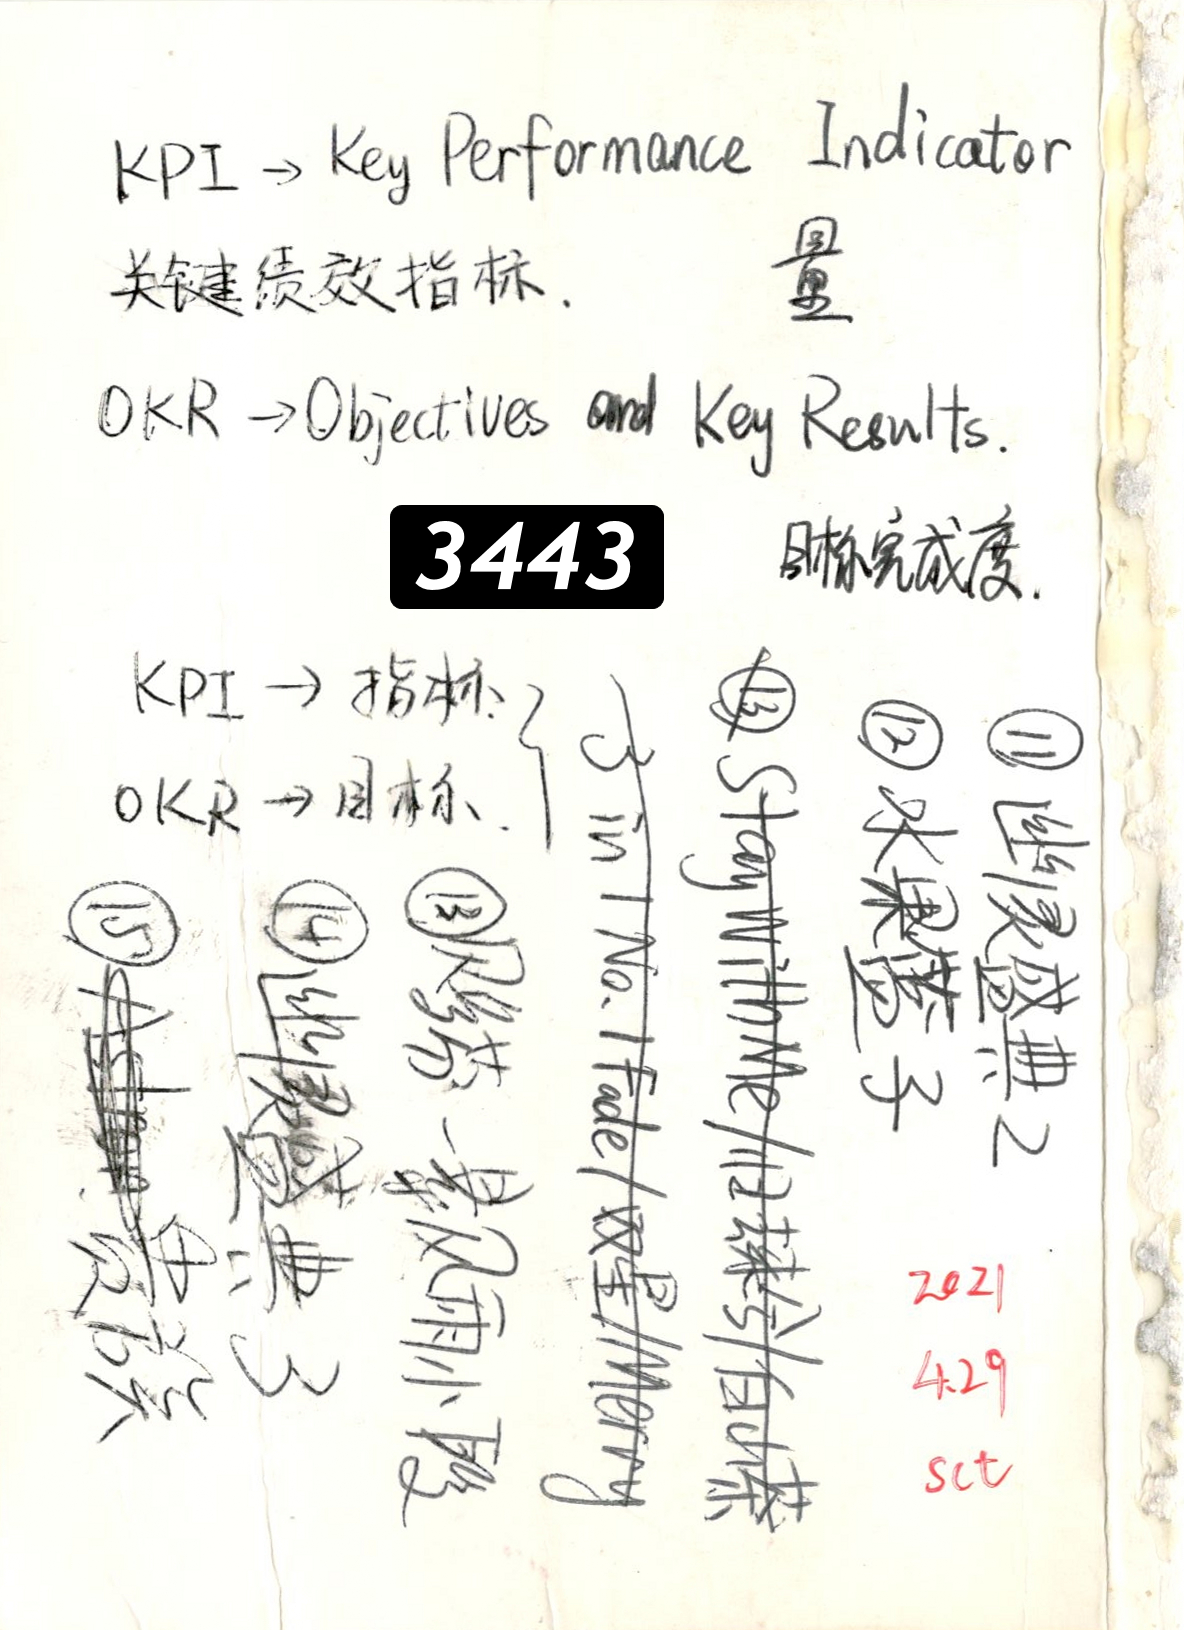 KPI → Key Performance Indicator
关键绩效指标.
量
OKR → Objectives and Key Results.
目标完成度.
3443
KPI → 指标.
OKR → 目标.
⑪ 幽灵盛典2
⑫ 水果篮子
⑬ Stay With Me/旧球鞋/白山茶
3 in 1 No.1 Fade/双生/Merry
⑬
⑭ 幽灵盛典3
⑮
2021
4.29
sct